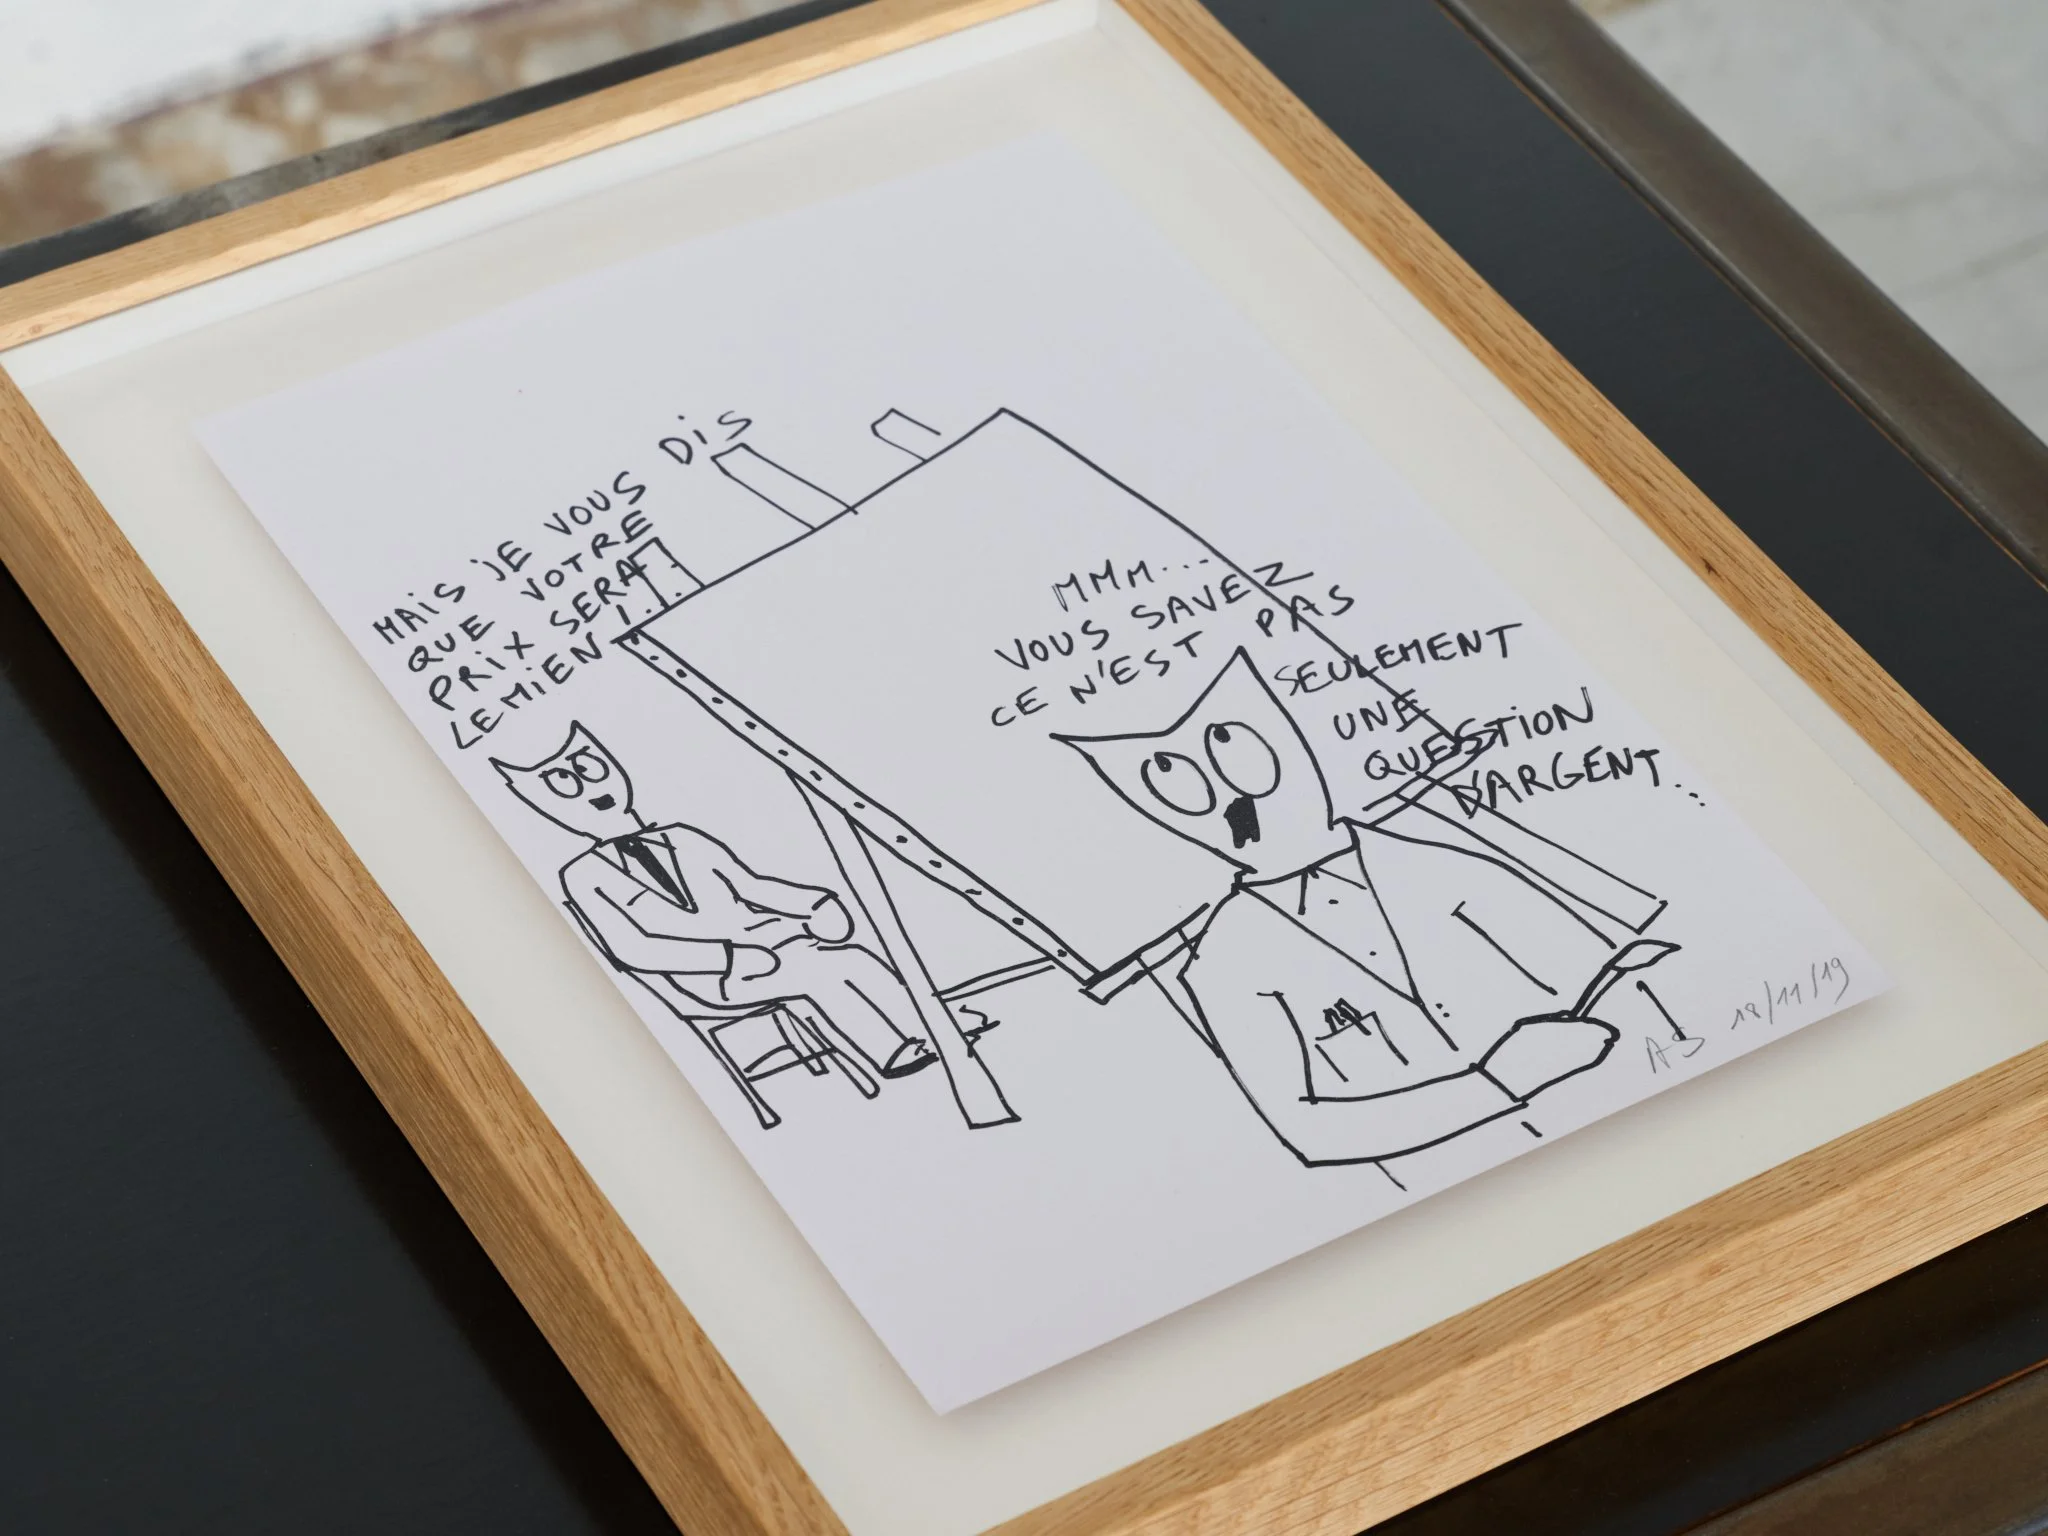 MAIS JE VOUS DIS
QUE VOTRE
PRIX SERA
LE MIEN !...
MMM...
VOUS SAVEZ
CE N'EST PAS
SEULEMENT
UNE
QUESTION
D'ARGENT...
AS 18/11/19